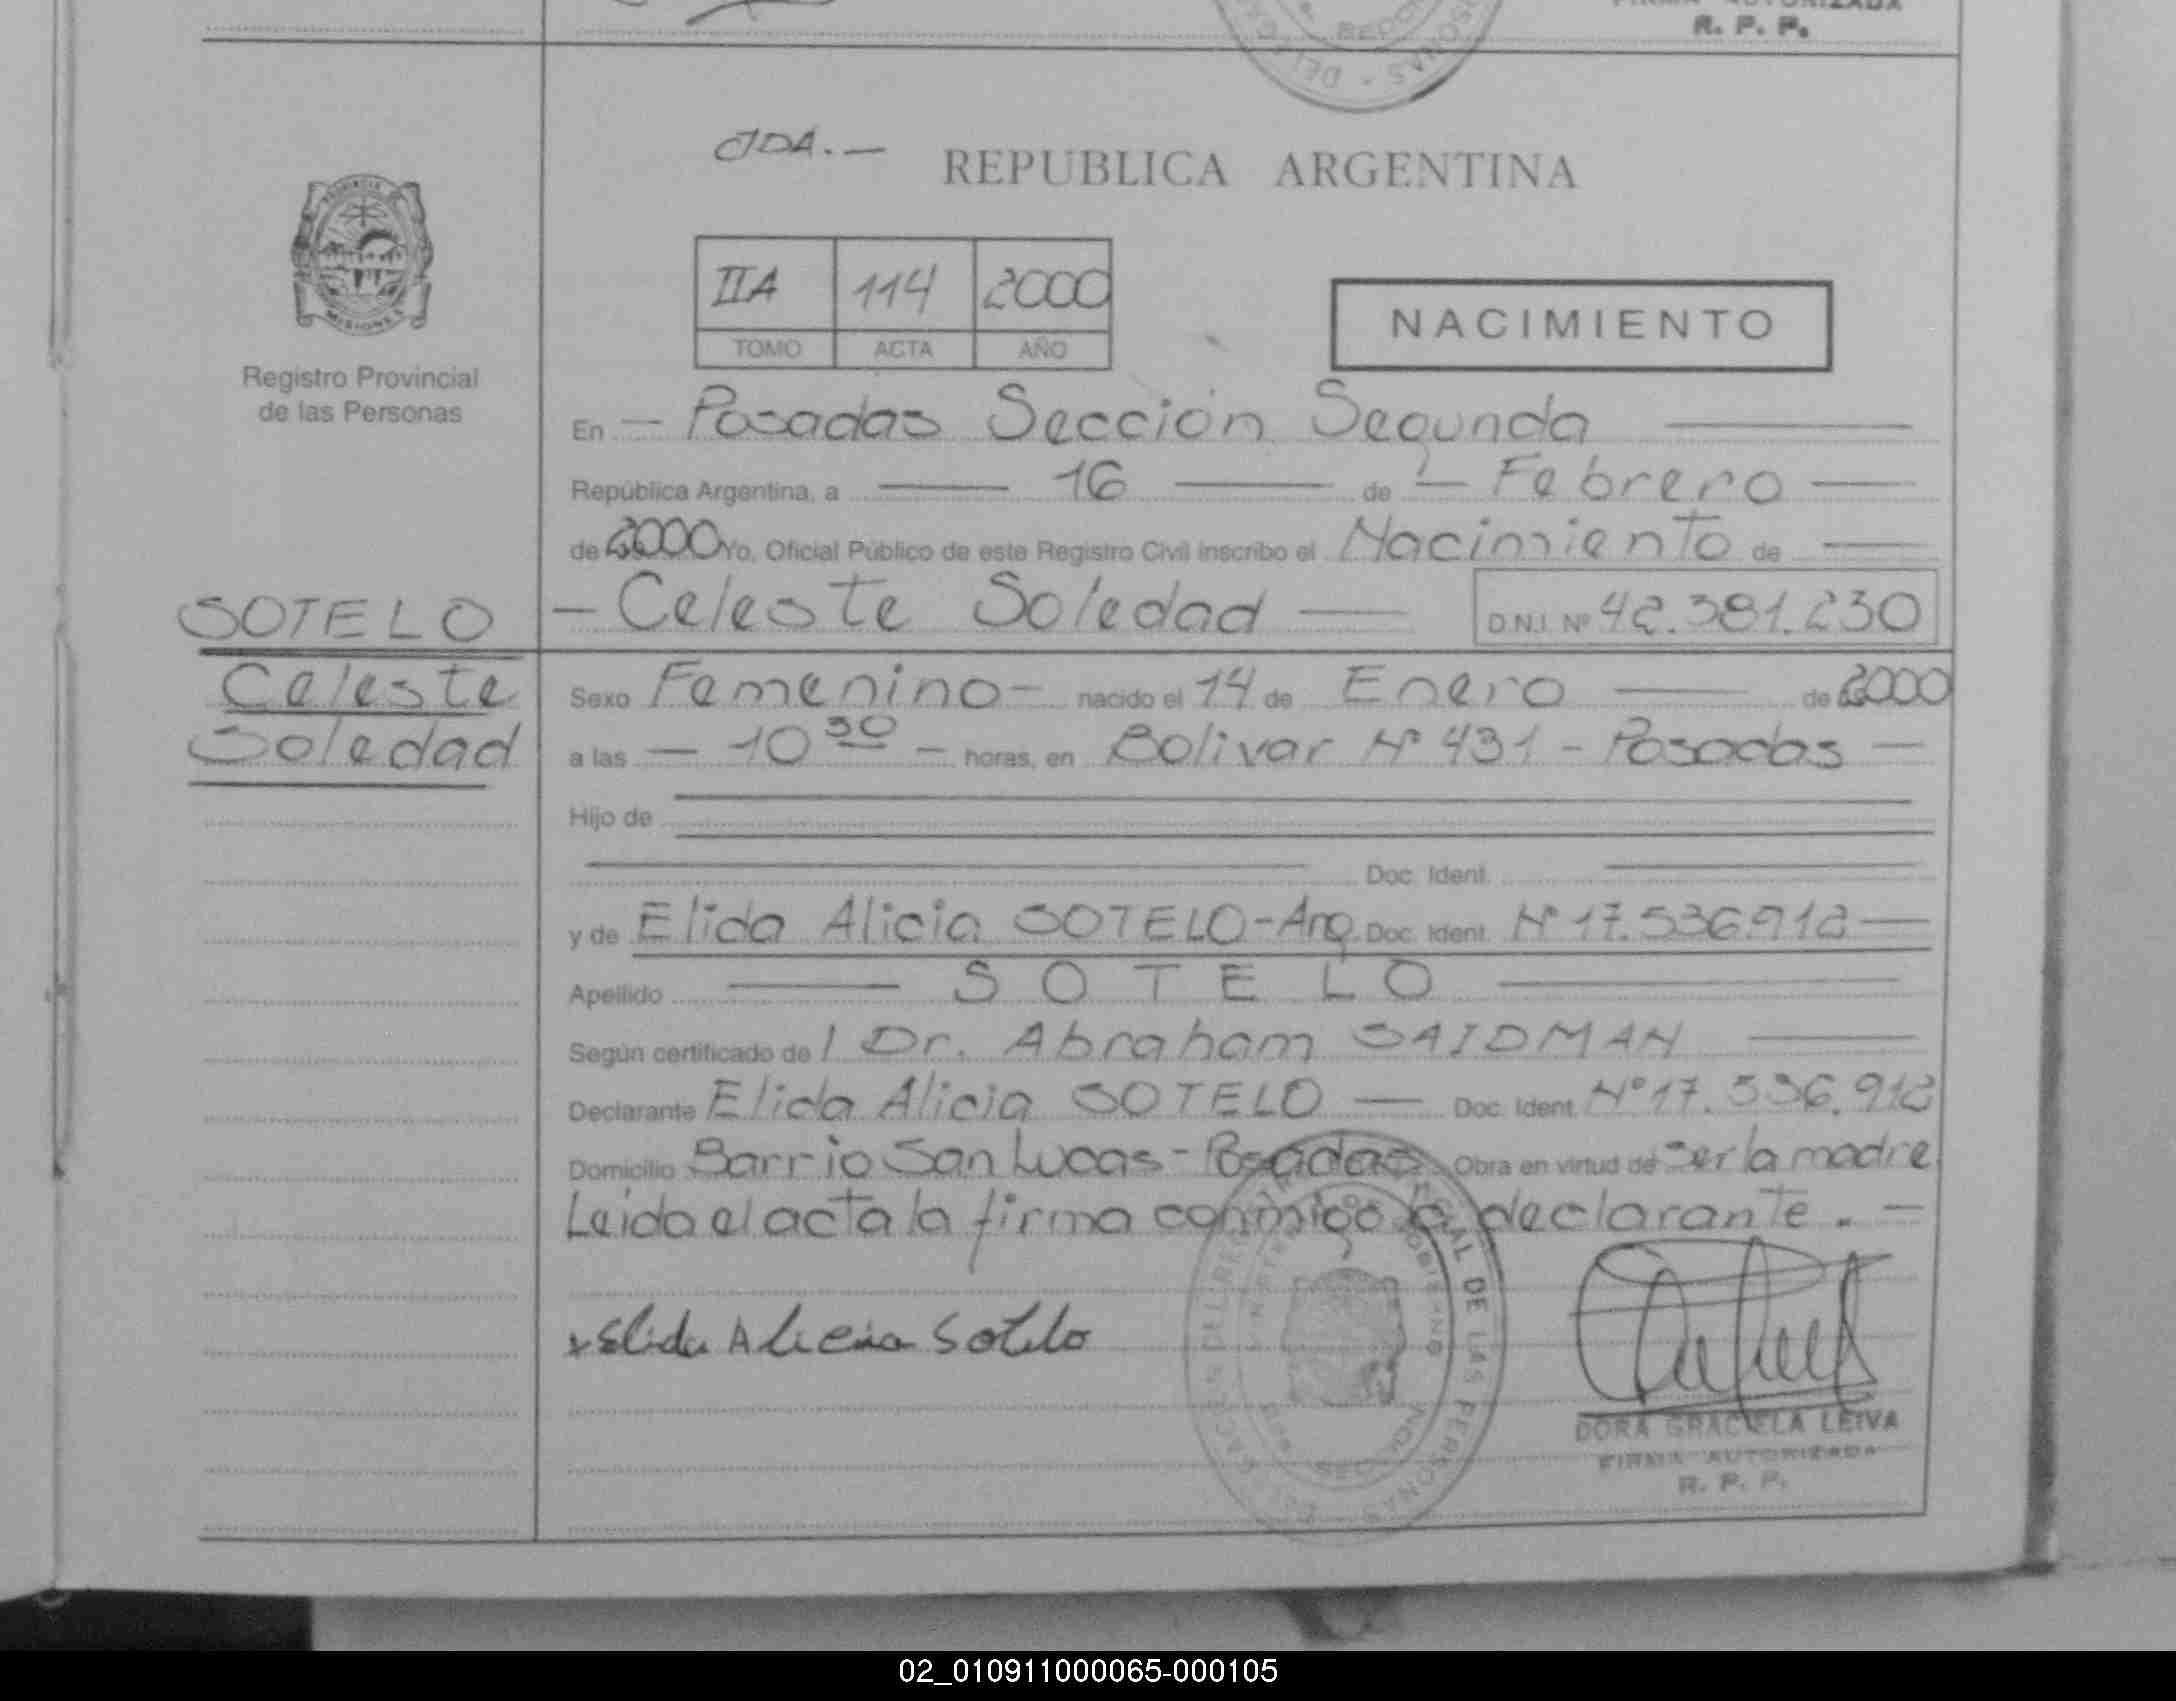 FIRMA AUTORIZADA
R. P. P.
JDA.—
REPUBLICA ARGENTINA
PROVINCIA
MISIONES
Registro Provincial
de las Personas
IIA 114 2000
TOMO ACTA AÑO
NACIMIENTO
En — Posadas Sección Segunda —
República Argentina, a — 16 — de — Febrero —
de 2000 Yo, Oficial Público de este Registro Civil inscribo el Nacimiento de —
SOTELO
Celeste
Soledad
— Celeste Soledad — D.N.I. Nº 42.381.230
Sexo Femenino — nacido el 14 de Enero — de 2000
a las — 10 30 — horas, en Bolivar Nº 431 - Posadas —
Hijo de
Doc. Ident.
y de Elida Alicia SOTELO-Arg. Doc. Ident. Nº 17.536.912 —
Apellido — S O T E L O —
Según certificado de l Dr. Abraham SAIDMAN —
Declarante Elida Alicia SOTELO — Doc. Ident. Nº 17.536.912
Domicilio Barrio San Lucas - Posadas Obra en virtud de ser la madre
Leido el acta la firma conmigo la declarante. —
Elida Alicia Sotelo
DORA GRACIELA LEIVA
FIRMA AUTORIZADA
R. P. P.
02_010911000065-000105